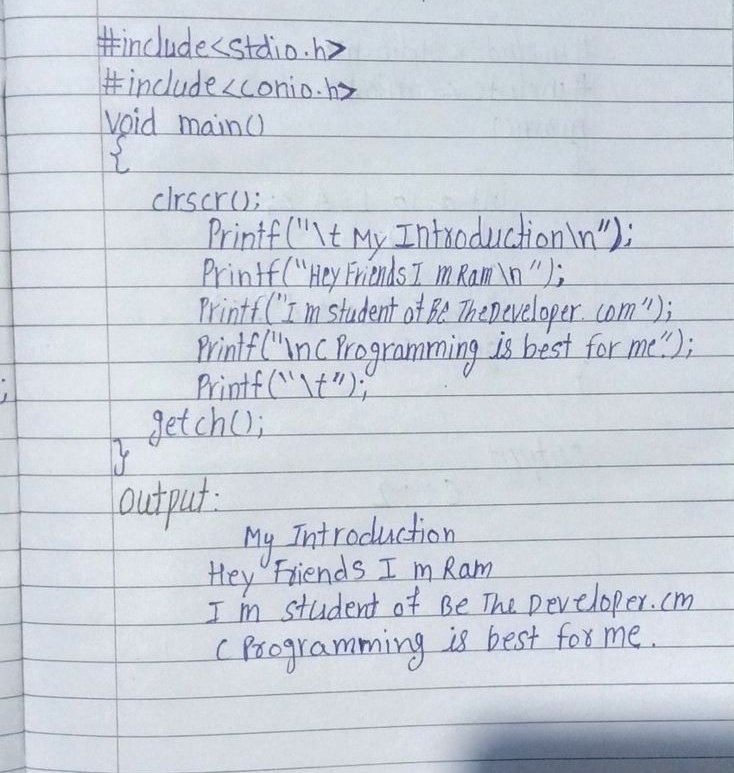 #include<stdio.h>
#include<conio.h>
void main()
{
clrscr();
Printf("\t My Introduction\n");
Printf("Hey Friends I m Ram \n");
Printf("I m student of Be TheDeveloper. com");
Printf("\nC Programming is best for me.");
Printf("\t");
;
getch();
}
output:
My Introduction
Hey Friends I m Ram
I m student of Be The Developer.cm
C Programming is best for me.